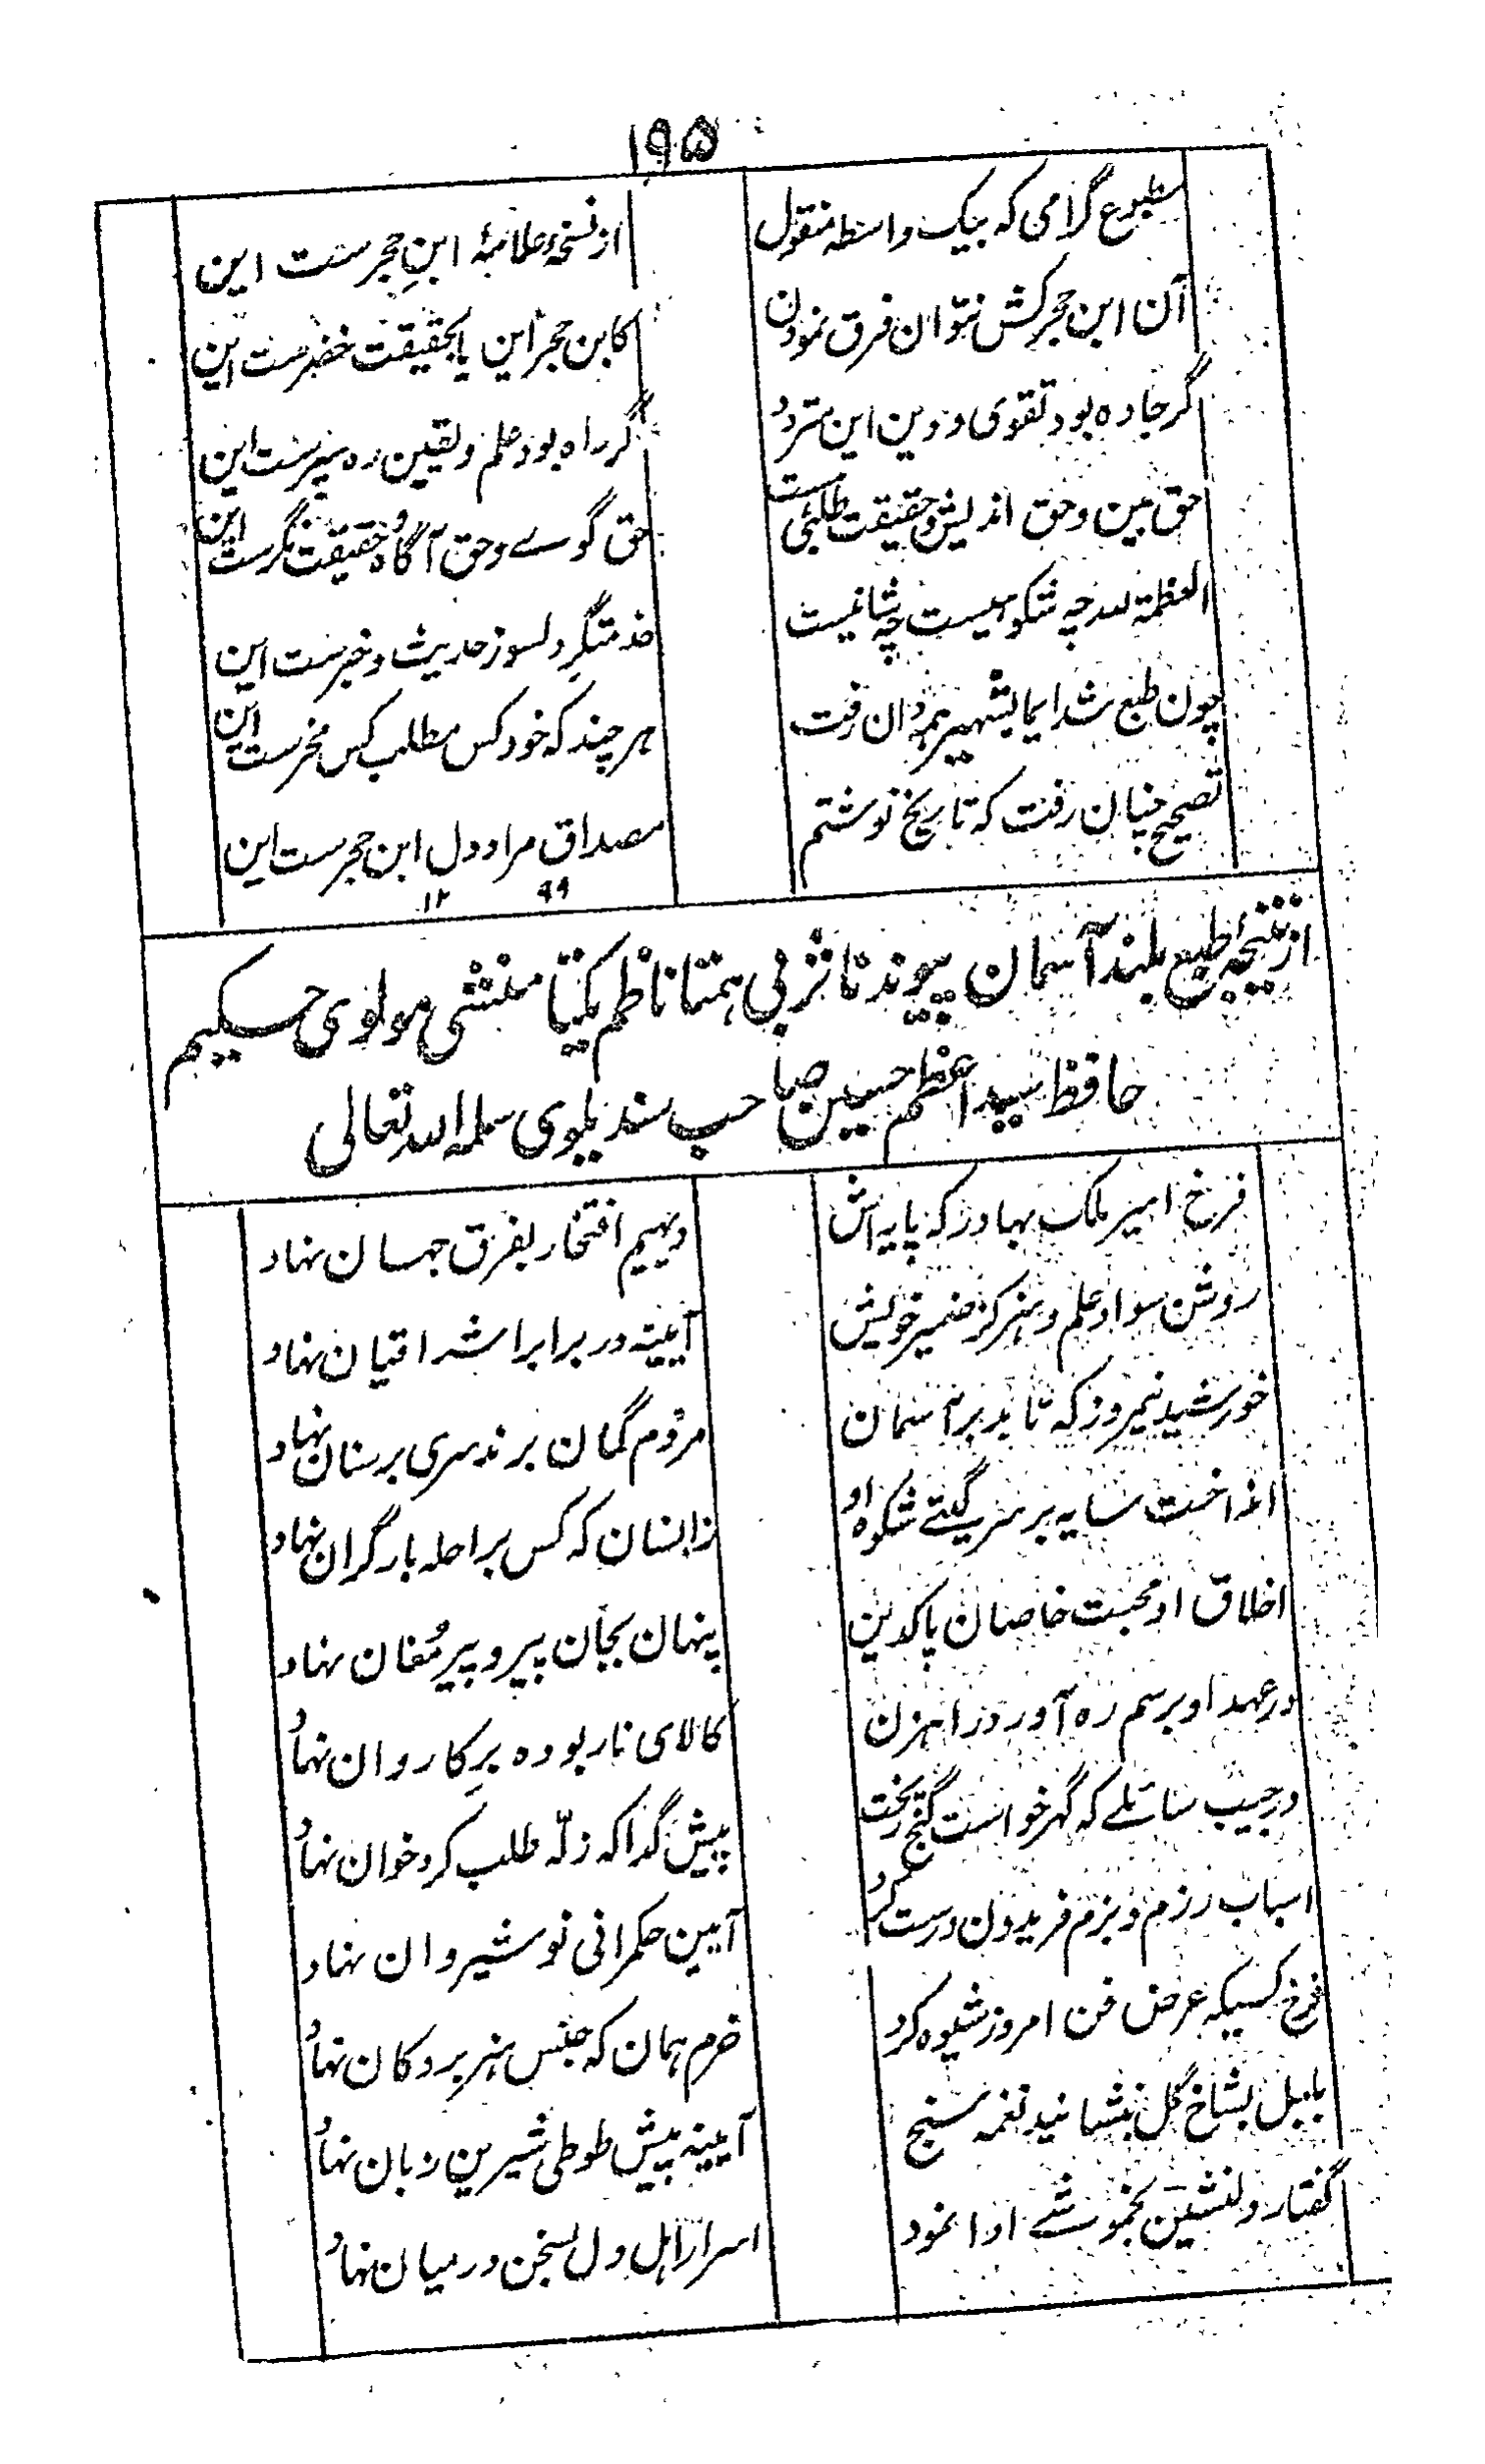 ۱۹۵
مطبوع گرامی که بیک واسطه منقول
از نسخهٔ علامهٔ ابنِ حجرست این
آن ابن حجر کش نتوان فرق نمودن
کابن حجر این یا بحقیقت خضرست این
گر جاده بود تقوی و دین این مترددُ
گر راه بود علم و یقین ره سپرست این
حق بین و حق اندیش و حقیقت طلبی ست
حق گوے و حق آگاہ و حقیقت نگرست این
العظمة لله چه شکوهیست چه شانیست
خدمتگرِ دلسوز حدیث و خبرست این
چون طبع شد ایما بتشهیر همه دان رفت
هر چند که خود کس مطلب کس مخرست این
تصحیح چنان رفت که تاریخ نوشتم
مصداق مراد دل ابن حجرست این
۱۲ ۹۹
از نتیجهٔ طبع بلند آسمان پیوند ناثر بی همتا ناظم یکتا منشی مولوی حکیم
حافظ سید اعظم حسین صاحب سندیلوی سلمه الله تعالی
فرخ امیر ملک بهادر که پایه اش
دیهیم افتخار بفرق جهان نهاد
روشن سواد علم و هنر کز ضمیر خویش
آیینه در برابر اشراقیان نهاد
خورشید نیمروز که تابد بر آسمان
مردم گمان برند سری بر سنان نهاد
انداخت سایه بر سر گیتے شکوه او
زانسان که کس براحله بار گران نهاد
اخلاق او محبت خاصان پاکدین
پنهان بجان پیرو پیر مُغان نهاد
در عهد او برسم ره آورد راهزن
کالای ناربوده برِ کاروان نهاد
در جیب سائلے که گهر خواست گنج ریخت
پیش گدا که زلّه طلب کرد خوان نهاد
اسباب رزم و بزم فریدون درست کرد
آیین حکمرانی نوشیروان نهاد
فرخ کسیکه عرض فن امروز شیوه کرد
خرم همان که جنس هنر برِ دکان نهاد
بلبل بشاخ گل بنشانید نغمه سنج
آیینه پیش طوطی شیرین زبان نهاد
گفتار دلنشین بخموشے ادا نمود
اسرار اهل دل بسخن در میان نهاد